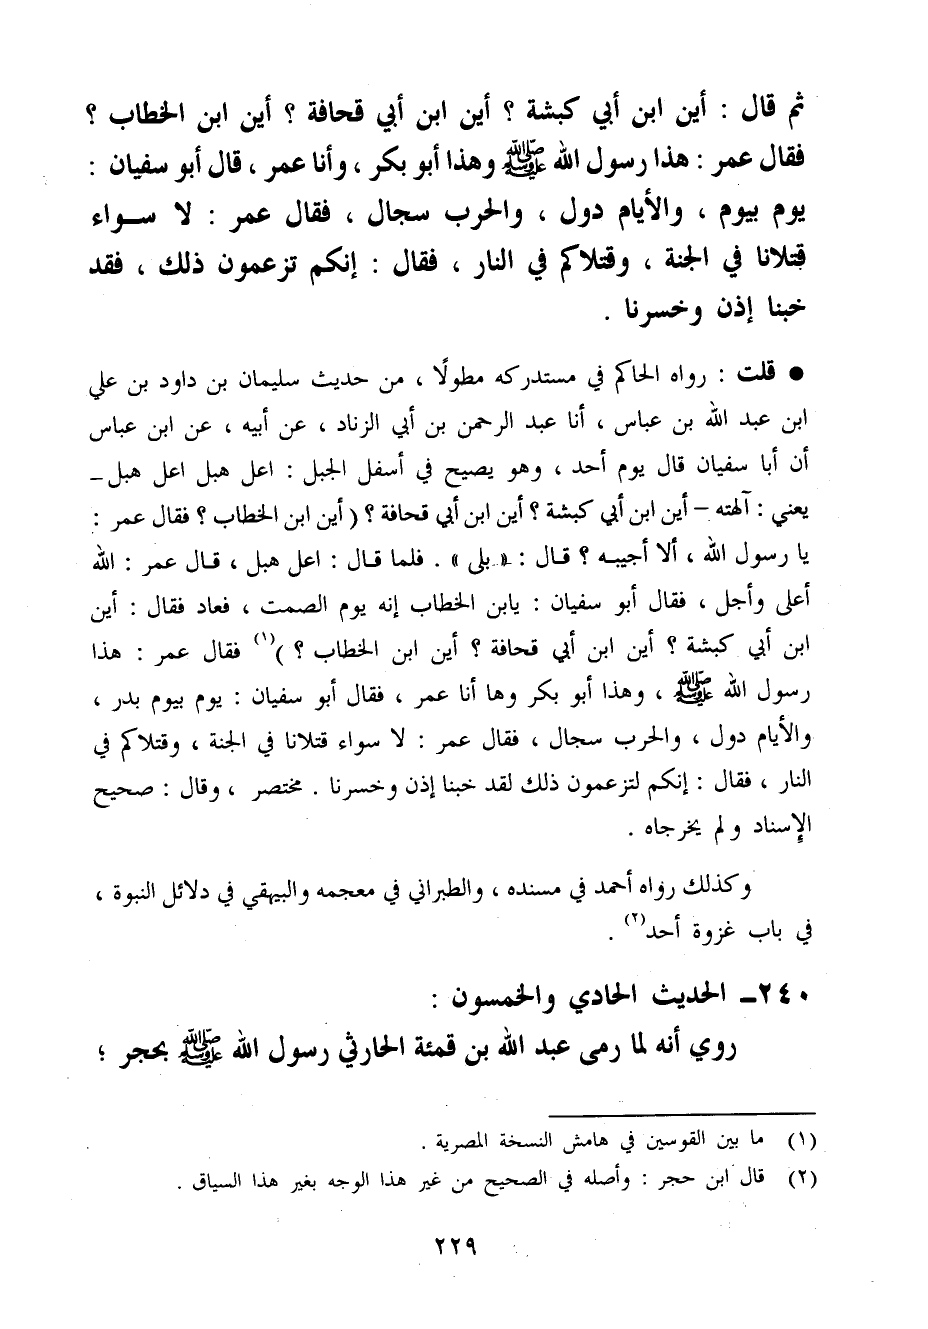 ثم قال : أين ابن أبي كبشة ؟ أين ابن أبي قحافة ؟ أين ابن الخطاب ؟
فقال عمر : هذا رسول الله ﷺ وهذا أبو بكر ، وأنا عمر ، قال أبو سفيان :
يوم بيوم ، والأيام دول ، والحرب سجال ، فقال عمر : لا سـواء
قتلانا في الجنة ، وقتلاكم في النار ، فقال : إنكم تزعمون ذلك ، فقد
خبنا إذن وخسرنا .
● قلت : رواه الحاكم في مستدركه مطولًا ، من حديث سليمان بن داود بن علي
ابن عبد الله بن عباس ، أنا عبد الرحمن بن أبي الزناد ، عن أبيه ، عن ابن عباس
أن أبا سفيان قال يوم أحد ، وهو يصيح في أسفل الجبل : اعل هبل اعل هبل ـ
يعني : آلهته – أين ابن أبي كبشة ؟ أين ابن أبي قحافة ؟ ( أين ابن الخطاب ؟ فقال عمر :
يا رسول الله ، ألا أجيبـه ؟ قـال : « بلى » . فلما قـال : اعل هبل ، قـال عمر : الله
أعلى وأجل ، فقال أبو سفيان : يابن الخطاب إنه يوم الصمت ، فعاد فقال : أين
ابن أبي كبشة ؟ أين ابن أبي قحافة ؟ أين ابن الخطاب ؟ )(١) فقال عمر : هذا
رسول الله ﷺ ، وهذا أبو بكر وها أنا عمر ، فقال أبو سفيان : يوم بيوم بدر ،
والأيام دول ، والحرب سجال ، فقال عمر : لا سواء قتلانا في الجنة ، وقتلاكم في
النار ، فقال : إنكم لتزعمون ذلك لقد خبنا إذن وخسرنا . مختصر ، وقال : صحيح
الإسناد ولم يخرجاه .
وكذلك رواه أحمد في مسنده ، والطبراني في معجمه والبيهقي في دلائل النبوة ،
في باب غزوة أحد(٢) .
٢٤٠ـ الحديث الحادي والخمسون :
روي أنه لما رمى عبد الله بن قمئة الحارثي رسول الله ﷺ بحجر ؛
(١) ما بين القوسين في هامش النسخة المصرية .
(٢) قال ابن حجر : وأصله في الصحيح من غير هذا الوجه بغير هذا السياق .
٢٢٩